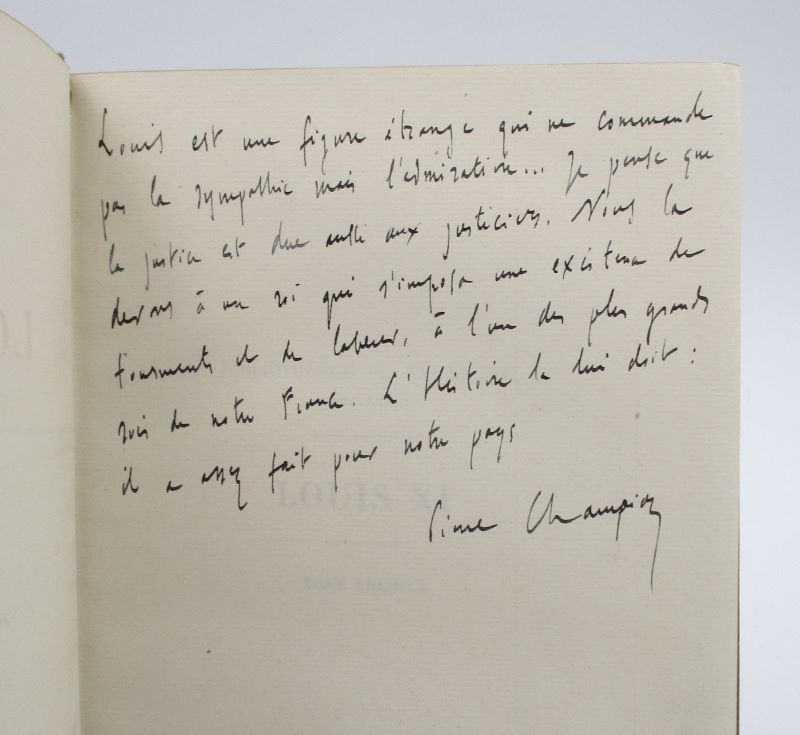 Louis est une figure étrange qui ne commande
pas la sympathie mais l'admiration... Je pense que
la justice est due aussi aux justiciers. Nous la
devons à un roi qui s'imposa une existence de
tourments et de labeur, à l'un des plus grands
rois de notre France. L'Histoire la lui doit :
il a assez fait pour notre pays
Pierre Champion
LOUIS XI
TOME PREMIER